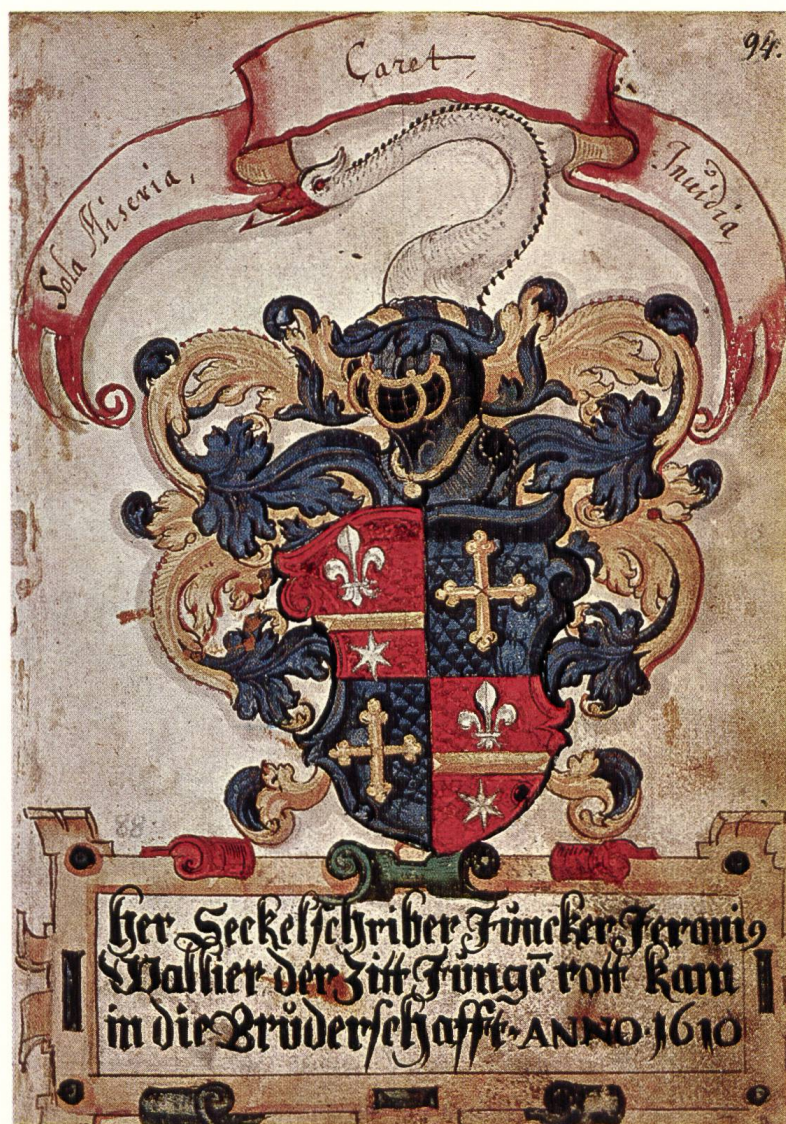 94.
Sola Miseria,
Caret
Inuidia,
88
her Seckelschriber Jůncker Jeroniꝯ
Wallier der zitt Jŭngē rott kam
in die Brůderschafft · ANNO · 1610